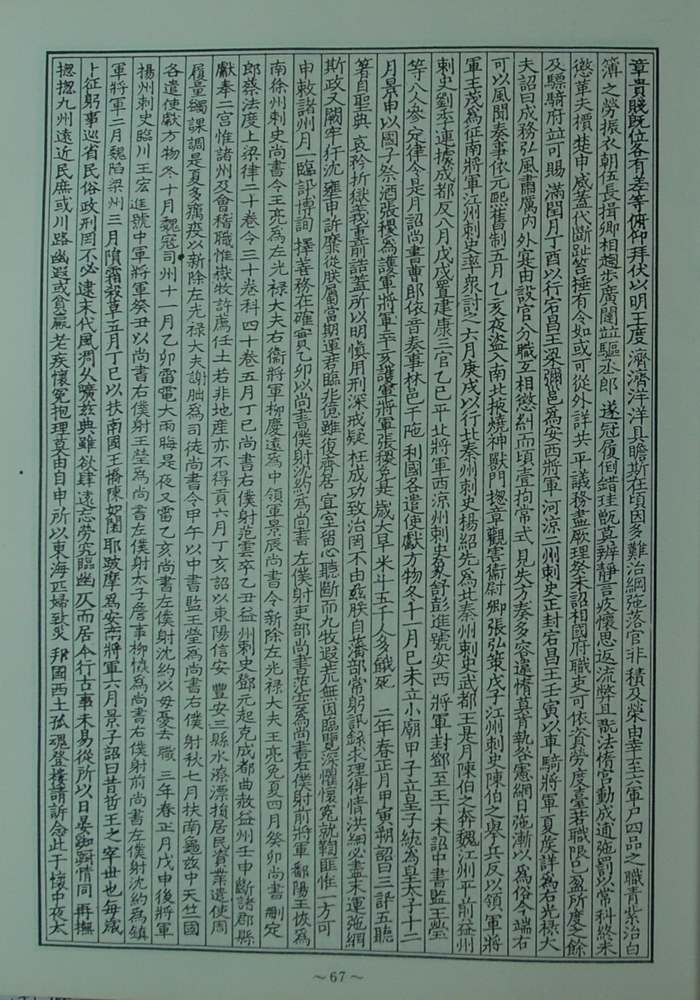 章貴賤既位各有差等俯仰拜伏以明王度濟濟洋洋具瞻斯在頃因多難治綱弛落官非積及榮由幸至六軍尸四品之職青紫治白
簿之勞振衣朝伍長揖卿相趨步廣闥並驅丞郎遂冠履倒錯珪甑莫辨靜言疚懷思返流弊且翫法惰官動成逋弛罰以常科終未
懲革夫檟楚申威蓋代斷趾笞捶有令如或可從外詳共平議務盡厥理癸未詔相國府職吏可依資勞度臺若職限已盈所度之餘
及驃騎府並可賜滿閏月丁酉以行宕昌王梁彌邕為安西將軍河涼二州刺史正封宕昌王壬寅以車騎將軍夏侯詳為右光祿大
夫詔曰成務弘風肅厲內外寔由設官分職互相懲糾而頃壹拘常式見失方奏多容違惰莫肯執咎憲網日弛漸以為俗今端右
可以風聞奏事依元熙舊制五月乙亥夜盜入南北掖燒神獸門揔章觀害衛尉卿張弘策戊子江州刺史陳伯之舉兵反以領軍將
軍王茂為征南將軍江州刺史率衆討之六月庚戌以行北秦州刺史楊紹先為北秦州刺史武都王是月陳伯之奔魏江州平前益州
刺史劉季連據成都反八月戊戌置建康三官乙巳平北將軍西涼州刺史象舒彭進號安西將軍封鄧至王丁未詔中書監王瑩
等八人參定律令是月詔尚書曹郎依昔奏事林邑干陁利國各遣使獻方物冬十一月己未立小廟甲子立皇子統為皇太子十二
月景申以國子祭酒張稷為護軍將軍辛亥護軍將軍張稷免是歲大旱米斗五千人多餓死二年春正月甲寅朝詔曰三訊五聽
著自聖典哀矜折獄義重前誥蓋所以明慎用刑深戒疑枉成功致治罔不由茲朕自藩部常躬訊錄求理得情洪細必盡末運弛網
斯政又闕牢犴沈壅申訴靡從朕屬當期運君臨兆億雖復齋居宣室留心聽斷而九牧遐荒無因臨覽深懼懷冤就鞫匪惟一方可
申敕諸州月一臨訊博詢擇善務在確實乙卯以尚書僕射沈約為尚書左僕射吏部尚書范雲為尚書右僕射前將軍鄱陽王恢為
南徐州刺史尚書令王亮為左光祿大夫右衛將軍柳慶遠為中領軍景辰尚書令新除左光祿大夫王亮免夏四月癸卯尚書刪定
郎蔡法度上梁律二十卷令三十卷科四十卷五月丁巳尚書右僕射范雲卒乙丑益州刺史鄧元起克成都曲赦益州壬申斷諸郡縣
獻奉二宮惟諸州及會稽職惟嶽牧許薦任土若非地產亦不得貢六月丁亥詔以東陽信安豐安三縣水潦漂損居民資業遣使周
履量蠲課調是夏多癘疫以新除左光祿大夫謝朏為司徒尚書令甲午以中書監王瑩為尚書右僕射秋七月扶南龜茲中天竺國
各遣使獻方物冬十月魏寇司州十一月乙卯雷電大雨晦是夜又雷乙亥尚書左僕射沈約以母憂去職三年春正月戊申後將軍
揚州刺史臨川王宏進號中軍將軍癸丑以尚書右僕射王瑩為尚書左僕射太子詹事柳惔為尚書右僕射前尚書左僕射沈約為鎮
軍將軍二月魏陷梁州三月隕霜殺草五月丁巳以扶南國王憍陳如闍耶跋摩為安南將軍六月景子詔曰昔哲王之宰世也每歲
卜征躬事巡省民俗政刑罔不必逮末代風凋久曠茲典雖欲肆遠忘勞究臨幽仄而居今行古事未易從所以日晏踟躕情同再撫
揔揔九州遠近民庶或川路幽遐或貧羸老疾懷冤抱理莫由自申所以東海匹婦致災邦國西土孤魂登樓請訴念此于懷中夜太
~67~